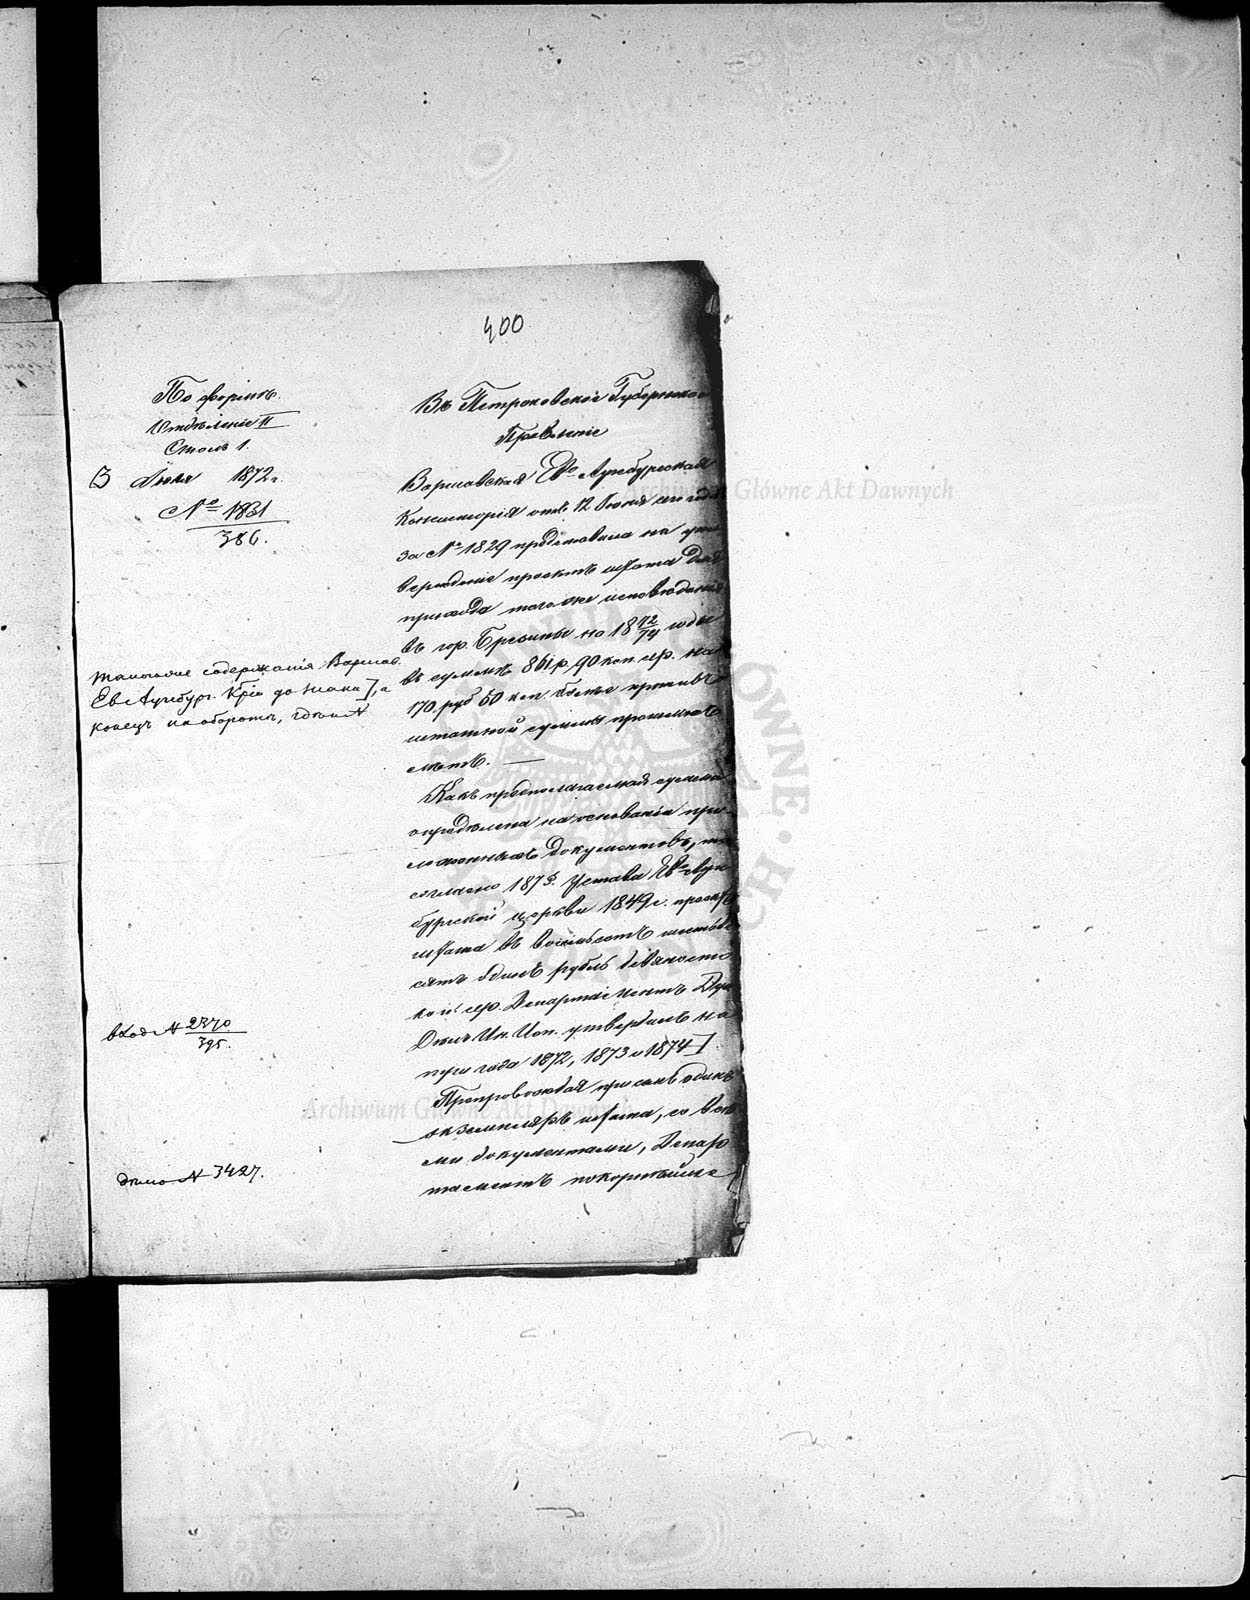 400
По формѣ.
Отдѣленіе II
Столъ 1.
3 Іюля 1872 г.
№ 1831
386.
Въ Петроковское Губернское
Правленіе
Варшавская Ево Аугсбургская
Консисторія отъ 12 Іюня сего года
за № 1829 представила на ут
вержденіе проектъ штата для
прихода того же исповѣданія
въ гор. Брезины на 18 72/74 годы
въ суммѣ 861 р. 90 коп. сер. на
170 руб 50 коп. болѣе противъ
штатной суммы прошлыхъ
смѣтъ. —
Какъ предполагаемая сумма
опредѣлена на основаніи при
ложенныхъ документовъ, то
согласно 187 §. Устава Ево Аугс
бургской церкви 1849 г. проектъ
штата въ восемьсотъ шестьде
сятъ одинъ рубль девяносто
коп. сер. Департаментъ Дух.
Дѣлъ Ин. Исп. утвердилъ на
три года 1872, 1873 и 1874 ].
Препровождая при семъ одинъ
экземпляръ штата, со всѣ
ми документами, Департ
таментъ покорнѣйше
содержанія Варшав.
Ев Аугсбург. Кріи до знака ], а
конецъ на оборотѣ, №
вход № 2370
395.
дѣло № 3427.
Archiwum Główne Akt Dawnych
Archiwum Główne Akt Dawnych